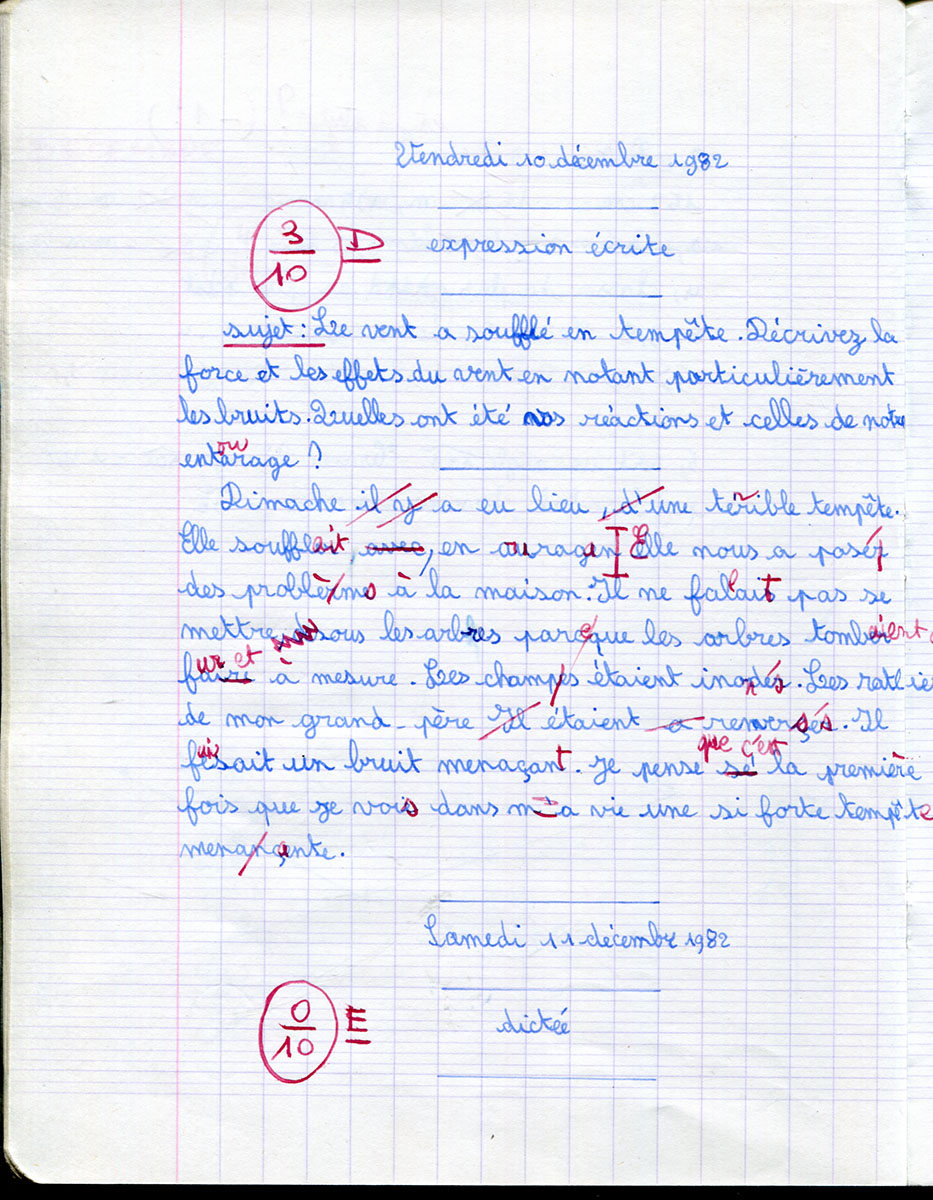 Vendredi 10 décembre 1982
3/10 D expression écrite
sujet : Le vent a soufflé en tempête. Décrivez la
force et les effets du vent en notant particulièrement
les bruits. Quelles ont été vos réactions et celles de votre
entourage ?
Dimache il y a eu lieu, d'une térible tempête.
Elle soufflait, avec, en ouragan E Elle nous a posér
des problèmes à la maison. Il ne falait pas se
mettre sous les arbres parceque les arbres tombaient
fur et à mesure. Les champs étaient inondés. Les
de mon grand-père Il étaient a renversés. Il
faisait un bruit menaçant. Je pense sé que c'est la première
fois que je vois dans ma vie une si forte tempête
menançante.
Samedi 11 décembre 1982
0/10 E dictée